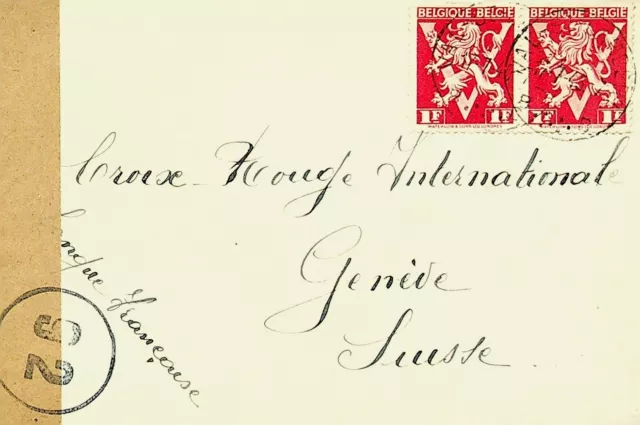 BELGIQUE-BELGIE BELGIQUE-BELGIE
1F 1F 1F 1F
Croix-Rouge Internationale
Genève
Suisse
Langue française
92